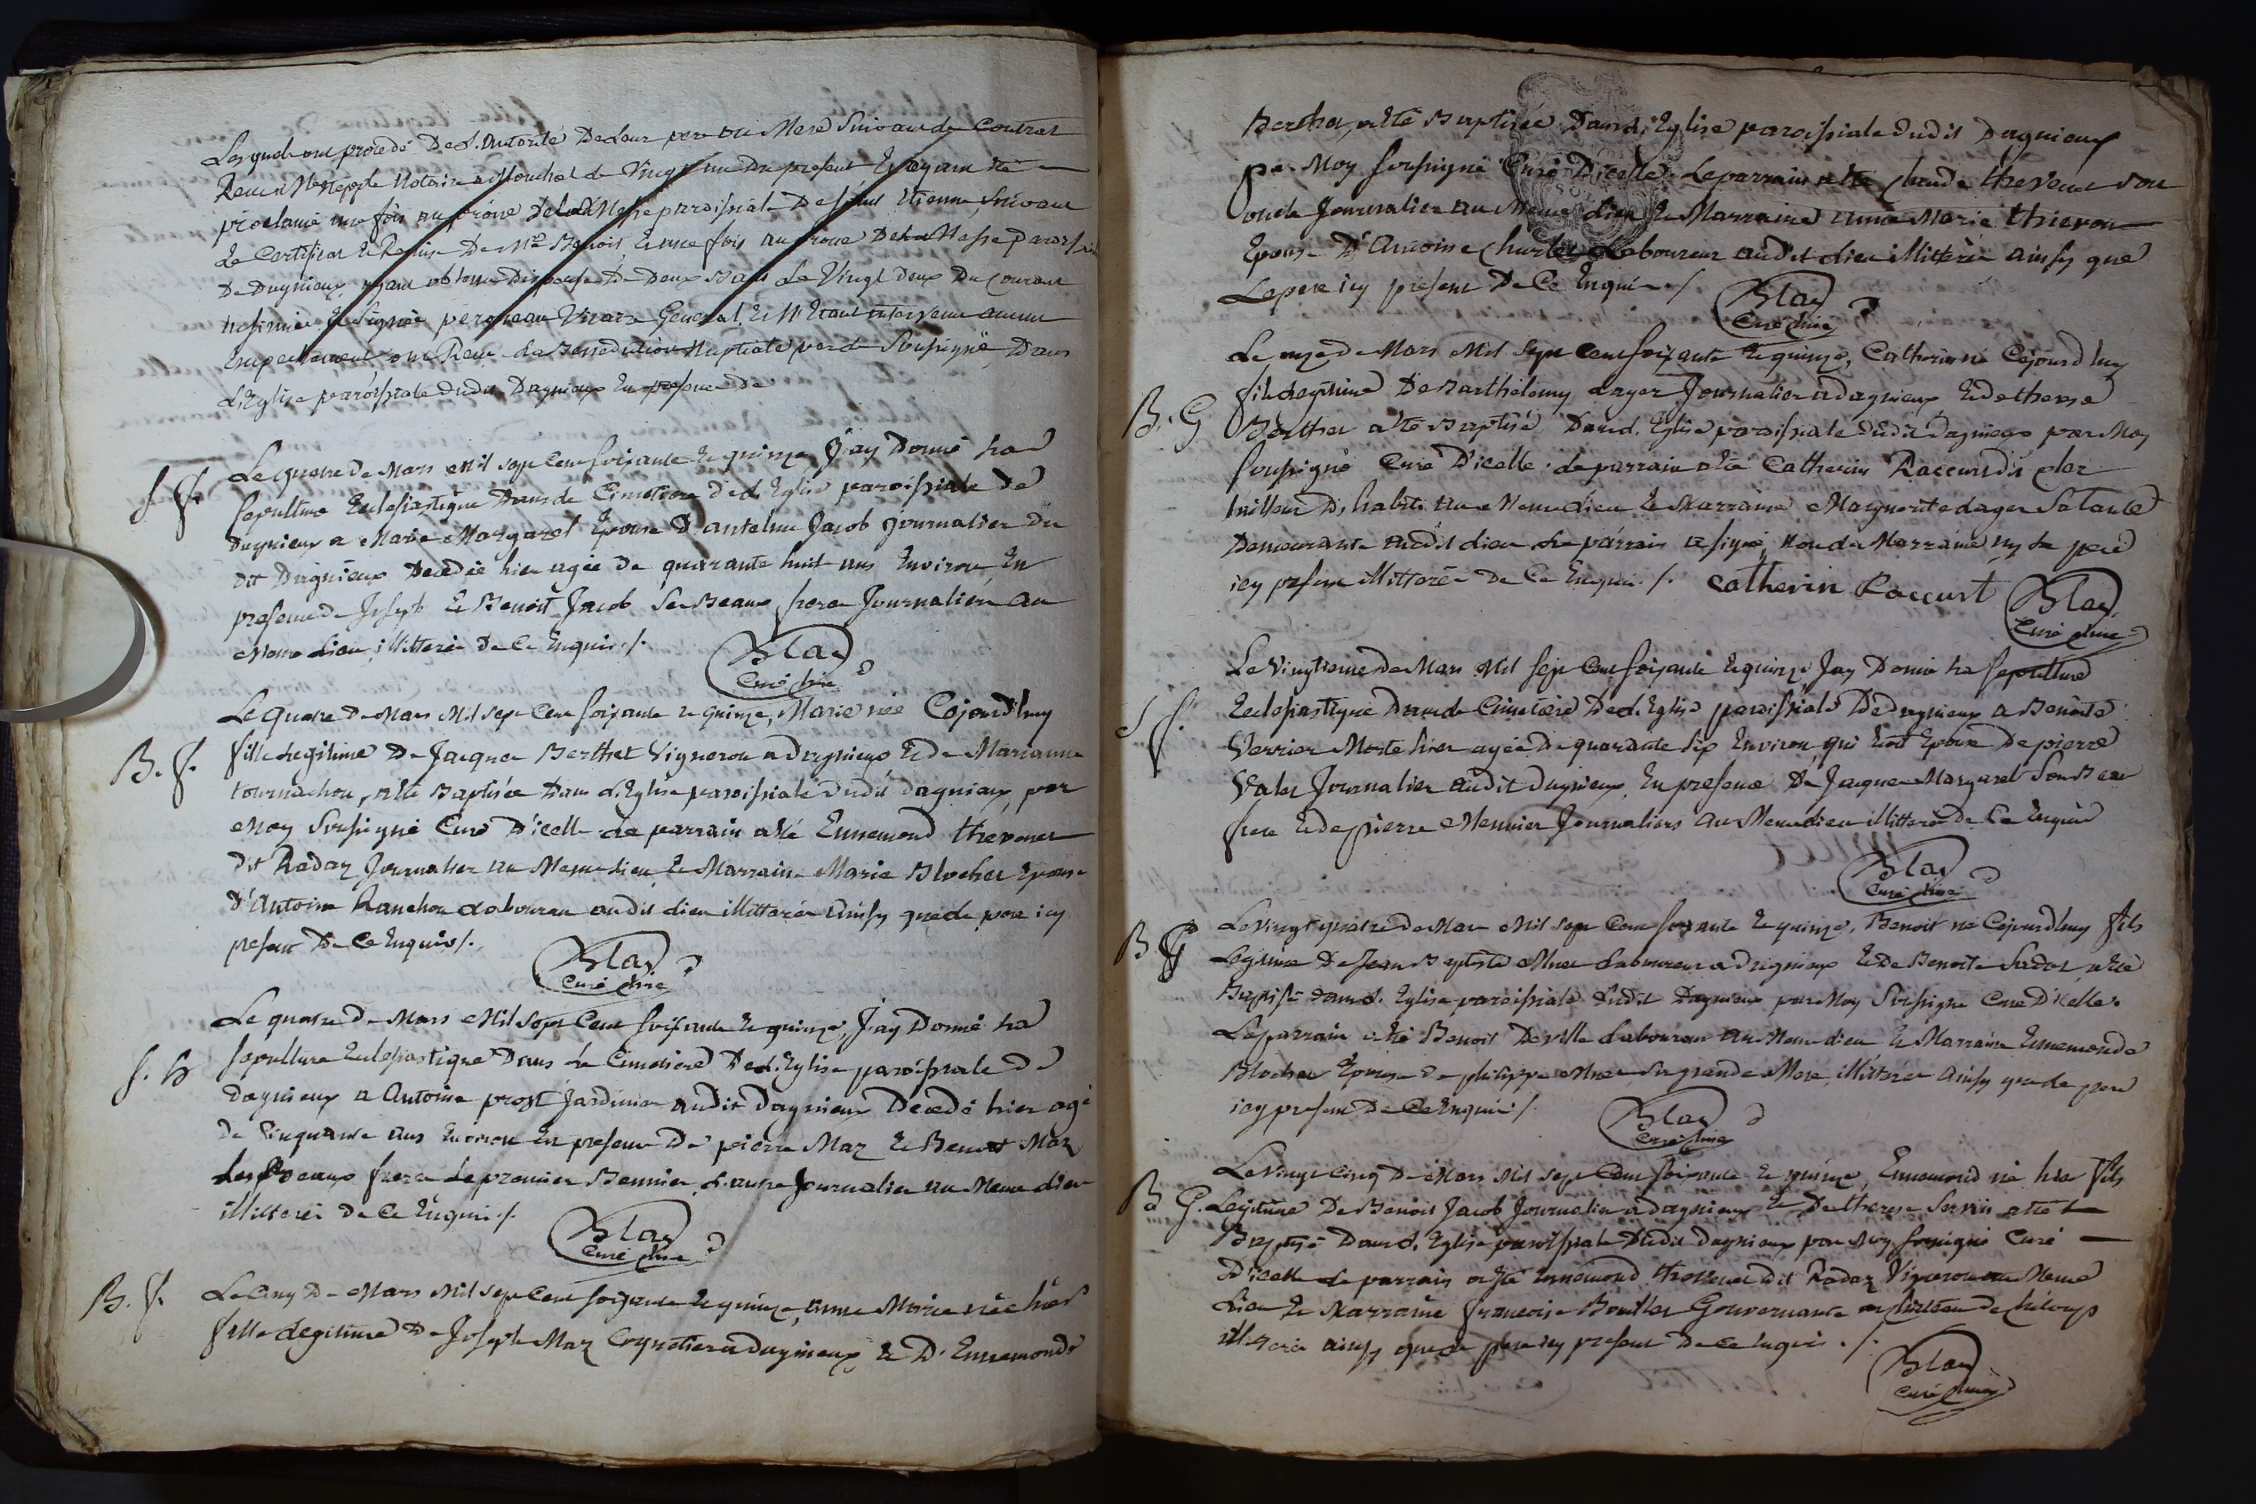 Lesquels ont procédé De L'Autorité De Leur pere ou Mere Suivant Le Contrat
Recu Me Notaire a Montluel Le Vingt une Du present Et ayant été
proclamé une fois au prône De La Messe paroissiale De Saint Etienne, Suivant
Le Certificat De Mre Benoit Et une fois au prone De La Messe paroissiale
De Dagnieux, ayant obtenu Dispense De Deux Bans Le Vingt Deux Du Courant
Signée Vicaire General, Et N'Etant intervenu aucun
Empechement ont Recu La Benediction Nuptiale par Le Soussigné Dans
L'Eglise paroissiale Dudit Dagnieux En presence de
S. f. Le quatre de Mars Mil sept Cent soixante Et quinze J'ay Donné La
sepulture Ecclesiastique Dans Le Cimetiere de d. Eglise paroissiale De
Dagnieux a Marie Margaret Epouse D'antelme Jacob journalier Du
dit Dagnieux Decedée hier agée De quarante huit ans Environ, En
presence de Joseph Et Benoit Jacob Ses Beaux freres Journaliers au
Meme Lieu, illitterés De Ce Enquis ./.
Blay
Curé
B. f. Le quatre De Mars Mil sept Cent soixante Et quinze, Marie née Cejourd'huy
fille Legitime De Jacques Berthet Vigneron a Dagnieux Et De Marianne
tournachon, a été Baptisée Dans L'Eglise paroissiale Dudit Dagnieux, par
Moy Soussigné Curé D'icelle Le parrain a été Ennemond thevenet
dit Radaz Journalier au Meme Lieu Et Marraine Marie Blochet Epouse
D'Antoine Ranchon Laboureur audit Lieu illitterés Ainsy que Le pere icy
present De Ce Enquis ./.
Blay
Curé
S. h Le quatre De Mars Mil sept Cent soixante Et quinze, J'ay Donné La
sepulture Ecclesiastique Dans Le Cimetiere De d. Eglise paroissiale De
Dagnieux a Antoine prost Jardinier audit Dagnieux Decedé hier agé
De Cinquante ans Environ En presence De pierre Maz Et Benoit Maz
Beaux freres Le premier L'autre Journalier au Meme Lieu
illitterés De Ce Enquis ./.
Blay
Curé
B. f. Le Cinq De Mars Mil sept Cent soixante Et quinze, anne Marie née hier
fille Legitime De Joseph Maz Coquetier a Dagnieux Et D'Ennemonde
Berthet, a été Baptisée Dans d. Eglise paroissiale dudit Dagnieux
par Moy soussigné Curé D'icelle. Le parrain a été Claude thevenet son
oncle Journalier au Meme Lieu Et Marraine anne Marie thievon
Epouse D'Antoine Charlet Laboureur audit Lieu illitterés ainsy que
Le pere icy present De Ce Enquis ./.
Blay
Curé
Le onze de Mars Mil sept cent soixante Et quinze, Catherin né Cejourd'huy
B. G fils Legitime De Barthelemy Lager Journalier a Dagnieux Et de therese
Berthet a été Baptisé Dans d. Eglise paroissiale dudit Dagnieux par Moy
soussigné Curé D'icelle. Le parrain a été Catherin Raccurt
tailleur D'habits au Meme Lieu Et Marraine Marguerite Lager Sa tante
Demeurante audit Lieu Le parrain a signé, Non La Marraine ny Le pere
icy present illitterés De Ce Enquis ./. Catherin Raccurt
Blay
Curé
Le Vingtieme De Mars Mil sept Cent soixante Et quinze J'ay Donné La sepulture
S f. Ecclesiastique Dans Le Cimetiere De d. Eglise paroissiale De Dagnieux a Benoite
Verrier Morte hier agée De quarante six Environ, qui Etoit Epouse De pierre
Valet Journalier audit Dagnieux, En presence De Jacques Margaret Son Beau
frere Et de pierre Meunier Journaliers au Meme Lieu illitterés De Ce Enquis
Blay
Curé
Le Vingt quatre De Mars Mil sept Cent soixante Et quinze, Benoit né Cejourd'huy fils
B G Legitime De Jean Baptiste Laboureur a Dagnieux Et De Benoite a été
Baptisé dans d. Eglise paroissiale dudit Dagnieux par Moy Soussigné Curé D'icelle.
Le parrain a été Benoit Deville Laboureur au Meme Lieu Et Marraine Ennemonde
Blochet Epouse De philippe Sa grande Mere illitterés Ainsy que Le pere
icy present De Ce Enquis ./.
Blay
Curé
Le Vingt Cinq De Mars Mil sept Cent soixante Et quinze, Ennemond né hier fils
B G. Legitime De Benoit Jacob Journalier a Dagnieux Et De therese a été
Baptisé Dans d. Eglise paroissiale Dudit Dagnieux par Moy soussigné Curé
D'icelle Le parrain a été Ennemond thevenet dit Radaz Vigneron au Meme
Lieu Et Marraine francoise Gouvernante au chateau de
illitterés ainsy que Le pere icy present De Ce Enquis ./.
Blay
Curé